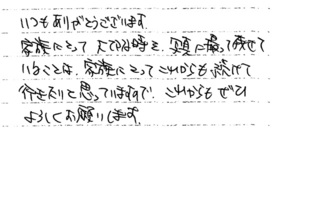 いつもありがとうございます。
家族にとって大切な時を、写真に撮って残せて
いることは、家族にとってこれからも続けて
行きたいと思っていますので、これからもぜひ
よろしくお願いします。